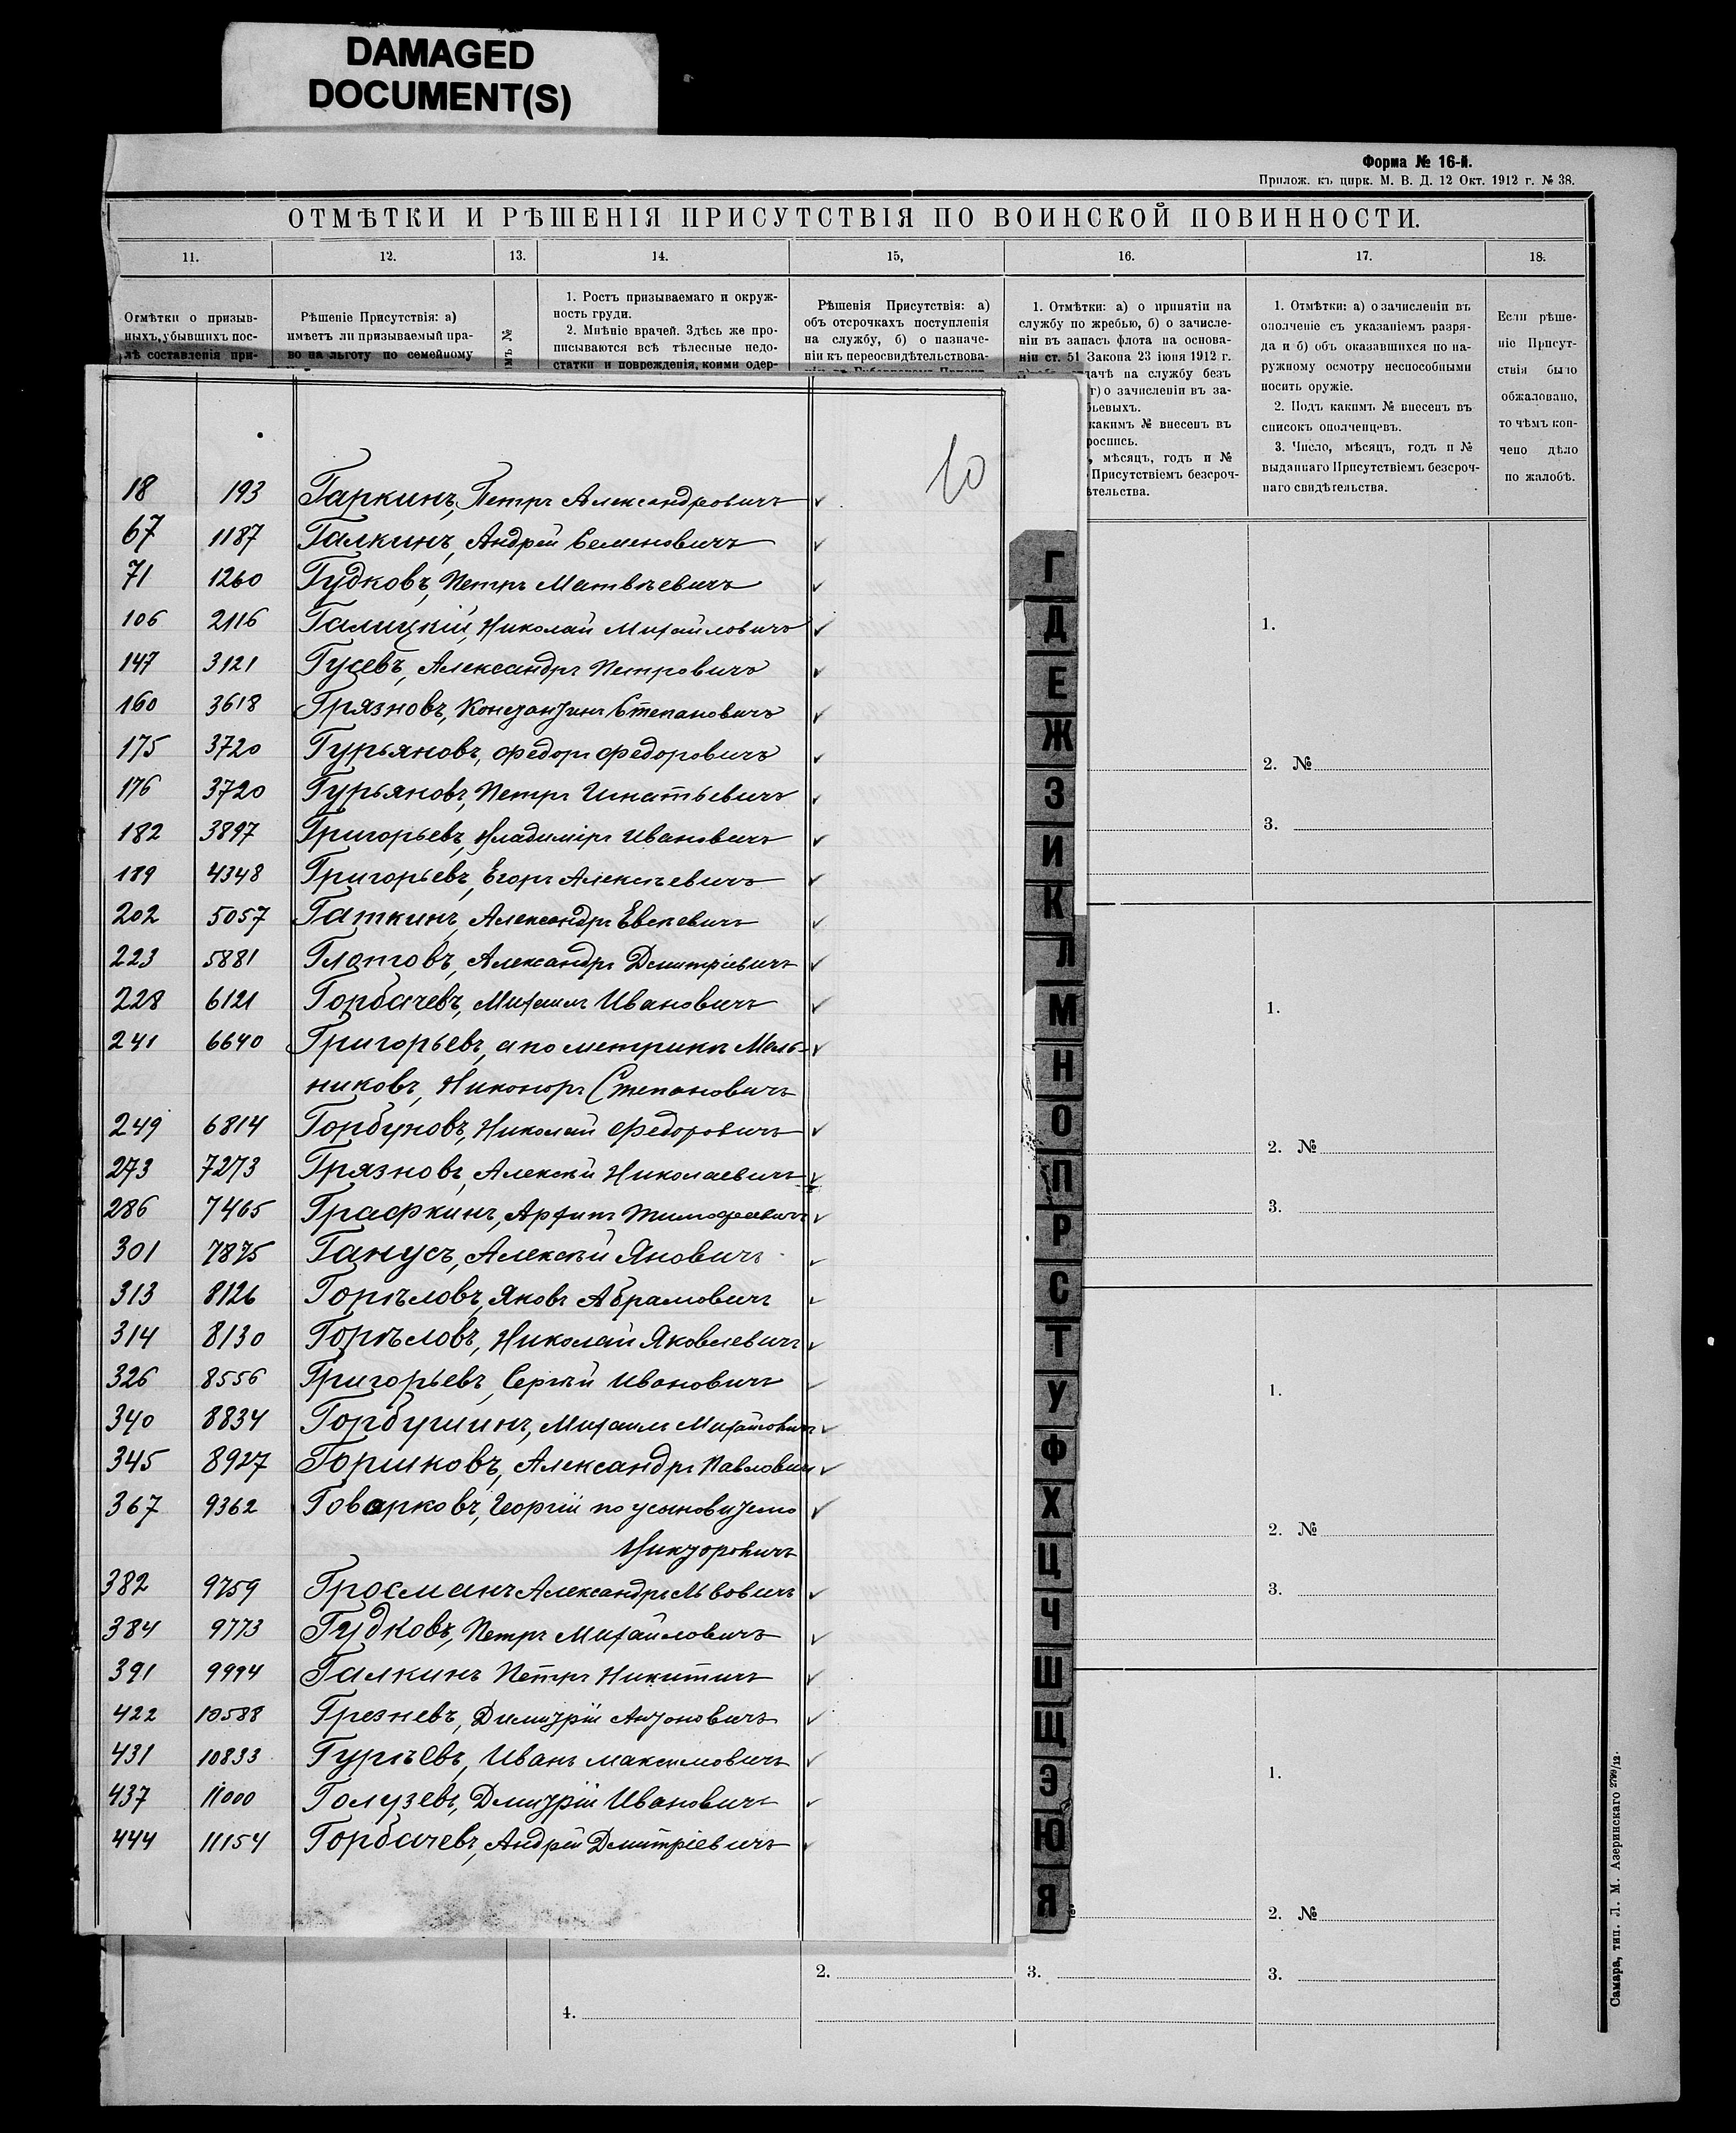 DAMAGED
DOCUMENT(S)
Форма № 16-й.
Прилож. къ цирк. М. В. Д. 12 Окт. 1912 г. № 38.
ОТМѢТКИ И РѢШЕНІЯ ПРИСУТСТВІЯ ПО ВОИНСКОЙ ПОВИННОСТИ.
11. 12. 13. 14. 15, 16. 17. 18.
Отмѣтки о призыв-
ныхъ, убывшихъ пос-
лѣ составленія при-
Рѣшеніе Присутствія: а)
имѣетъ ли призываемый пра-
во на льготу по семейному
имъ №
1. Ростъ призываемаго и окруж-
ность груди.
2. Мнѣніе врачей. Здѣсь же про-
писываются всѣ тѣлесные недо-
статки и поврежденія, коими одер-
Рѣшенія Присутствія: а)
объ отсрочкахъ поступленія
на службу, б) о назначе-
ніи къ переосвидѣтельствова-
1. Отмѣтки: а) о принятіи на
службу по жребію, б) о зачисле-
ніи въ запасъ флота на основа-
ніи ст. 51 Закона 23 іюня 1912 г.
дачѣ на службу безъ
г) о зачисленіи въ за-
ьевыхъ.
какимъ № внесенъ въ
роспись.
, мѣсяцъ, годъ и №
Присутствіемъ безсроч-
ѣтельства.
1. Отмѣтки: а) о зачисленіи въ
ополченіе съ указаніемъ разря-
да и б) объ оказавшихся по на-
ружному осмотру неспособными
носить оружіе.
2. Подъ какимъ № внесенъ въ
списокъ ополченцевъ.
3. Число, мѣсяцъ, годъ и №
выданнаго Присутствіемъ безсроч-
наго свидѣтельства.
Если рѣше-
ніе Присут-
ствія было
обжаловано,
то чѣмъ кон-
чено дѣло
по жалобѣ.
10
18 193 Гаркинъ, Петръ Александровичъ ✓
67 1187 Галкинъ, Андрей Семеновичъ ✓
71 1260 Гудковъ, Петръ Матвѣевичъ ✓
106 2116 Галицкій, Николай Михайловичъ ✓
147 3121 Гусевъ, Александръ Петровичъ ✓
160 3618 Грязновъ, Константинъ Степановичъ ✓
175 3720 Гурьяновъ, Федоръ Федоровичъ ✓
176 3720 Гурьяновъ, Петръ Игнатьевичъ ✓
182 3897 Григорьевъ, Владиміръ Ивановичъ ✓
189 4348 Григорьевъ, Егоръ Алексѣевичъ ✓
202 5057 Гаткинъ, Александръ Евсѣевичъ ✓
223 5881 Александръ Дмитріевичъ ✓
228 6121 Горбачевъ, Михаилъ Ивановичъ ✓
241 6640 Григорьевъ, а по метрикѣ Мель- ✓
никовъ, Никоноръ Степановичъ
249 6814 Горбуновъ, Николай Федоровичъ ✓
273 7273 Грязновъ, Алексѣй Николаевичъ ✓
286 7465 Графкинъ, Архипъ Тимофеевичъ ✓
301 7875 Ганусъ, Алексѣй Яновичъ ✓
313 8126 Горѣловъ, Яковъ Абрамовичъ ✓
314 8130 Горѣловъ, Николай Яковлевичъ ✓
326 8556 Григорьевъ, Сергѣй Ивановичъ ✓
340 8834 Горбушинъ, Михаилъ Михайловичъ ✓
345 8927 Горшковъ, Александръ Павловичъ ✓
367 9362 Говорковъ, Георгій по усыновителю ✓
Викторовичъ
382 9759 Гросманъ Александръ Львовичъ ✓
384 9773 Гудковъ, Петръ Михайловичъ ✓
391 9994 Галкинъ Петръ Никитичъ ✓
422 10588 Грезневъ, Димитрій Антоновичъ ✓
431 10833 Гурѣевъ, Иванъ Максимовичъ ✓
437 11000 Голузевъ, Дмитрій Ивановичъ ✓
444 11154 Горбачевъ, Андрей Дмитріевичъ ✓
Г
Д
Е
Ж
З
И
К
Л
М
Н
О
П
Р
С
Т
У
Ф
Х
Ц
Ч
Ш
Щ
Э
Ю
Я
1.
2. №
3.
1.
2. №
3.
1.
2. №
3.
1.
2. №
2. 3. 3.
4.
Самара, тип. Л. М. Азеринскаго 2799/12.